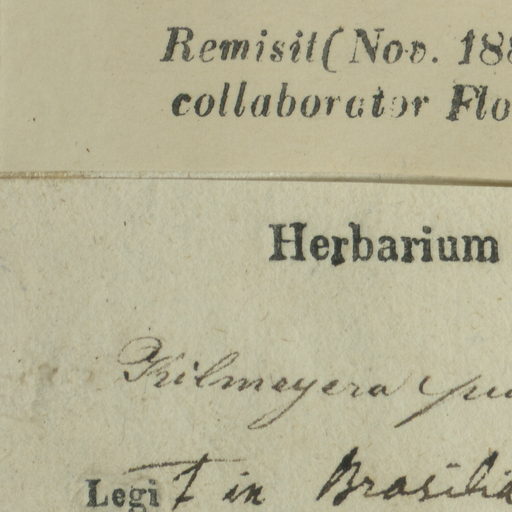 Remisit (Nov. 188
collaborator Flo
Herbarium
Kilmeyera
Legit in Brasilia